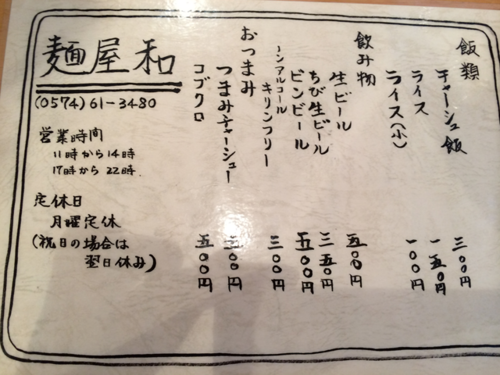 麺屋 和
(0574)61-3480
営業時間
11時から14時
17時から22時
定休日
月曜定休
(祝日の場合は
翌日休み)
飯類
チャーシュ飯 三〇〇円
ライス 一五〇円
ライス(小) 一〇〇円
飲み物
生ビール 五〇〇円
ちび生ビール 三五〇円
ビンビール 五〇〇円
ノンアルコール
キリンフリー 三〇〇円
おつまみ
つまみチャーシュー 三〇〇円
コブクロ 五〇〇円